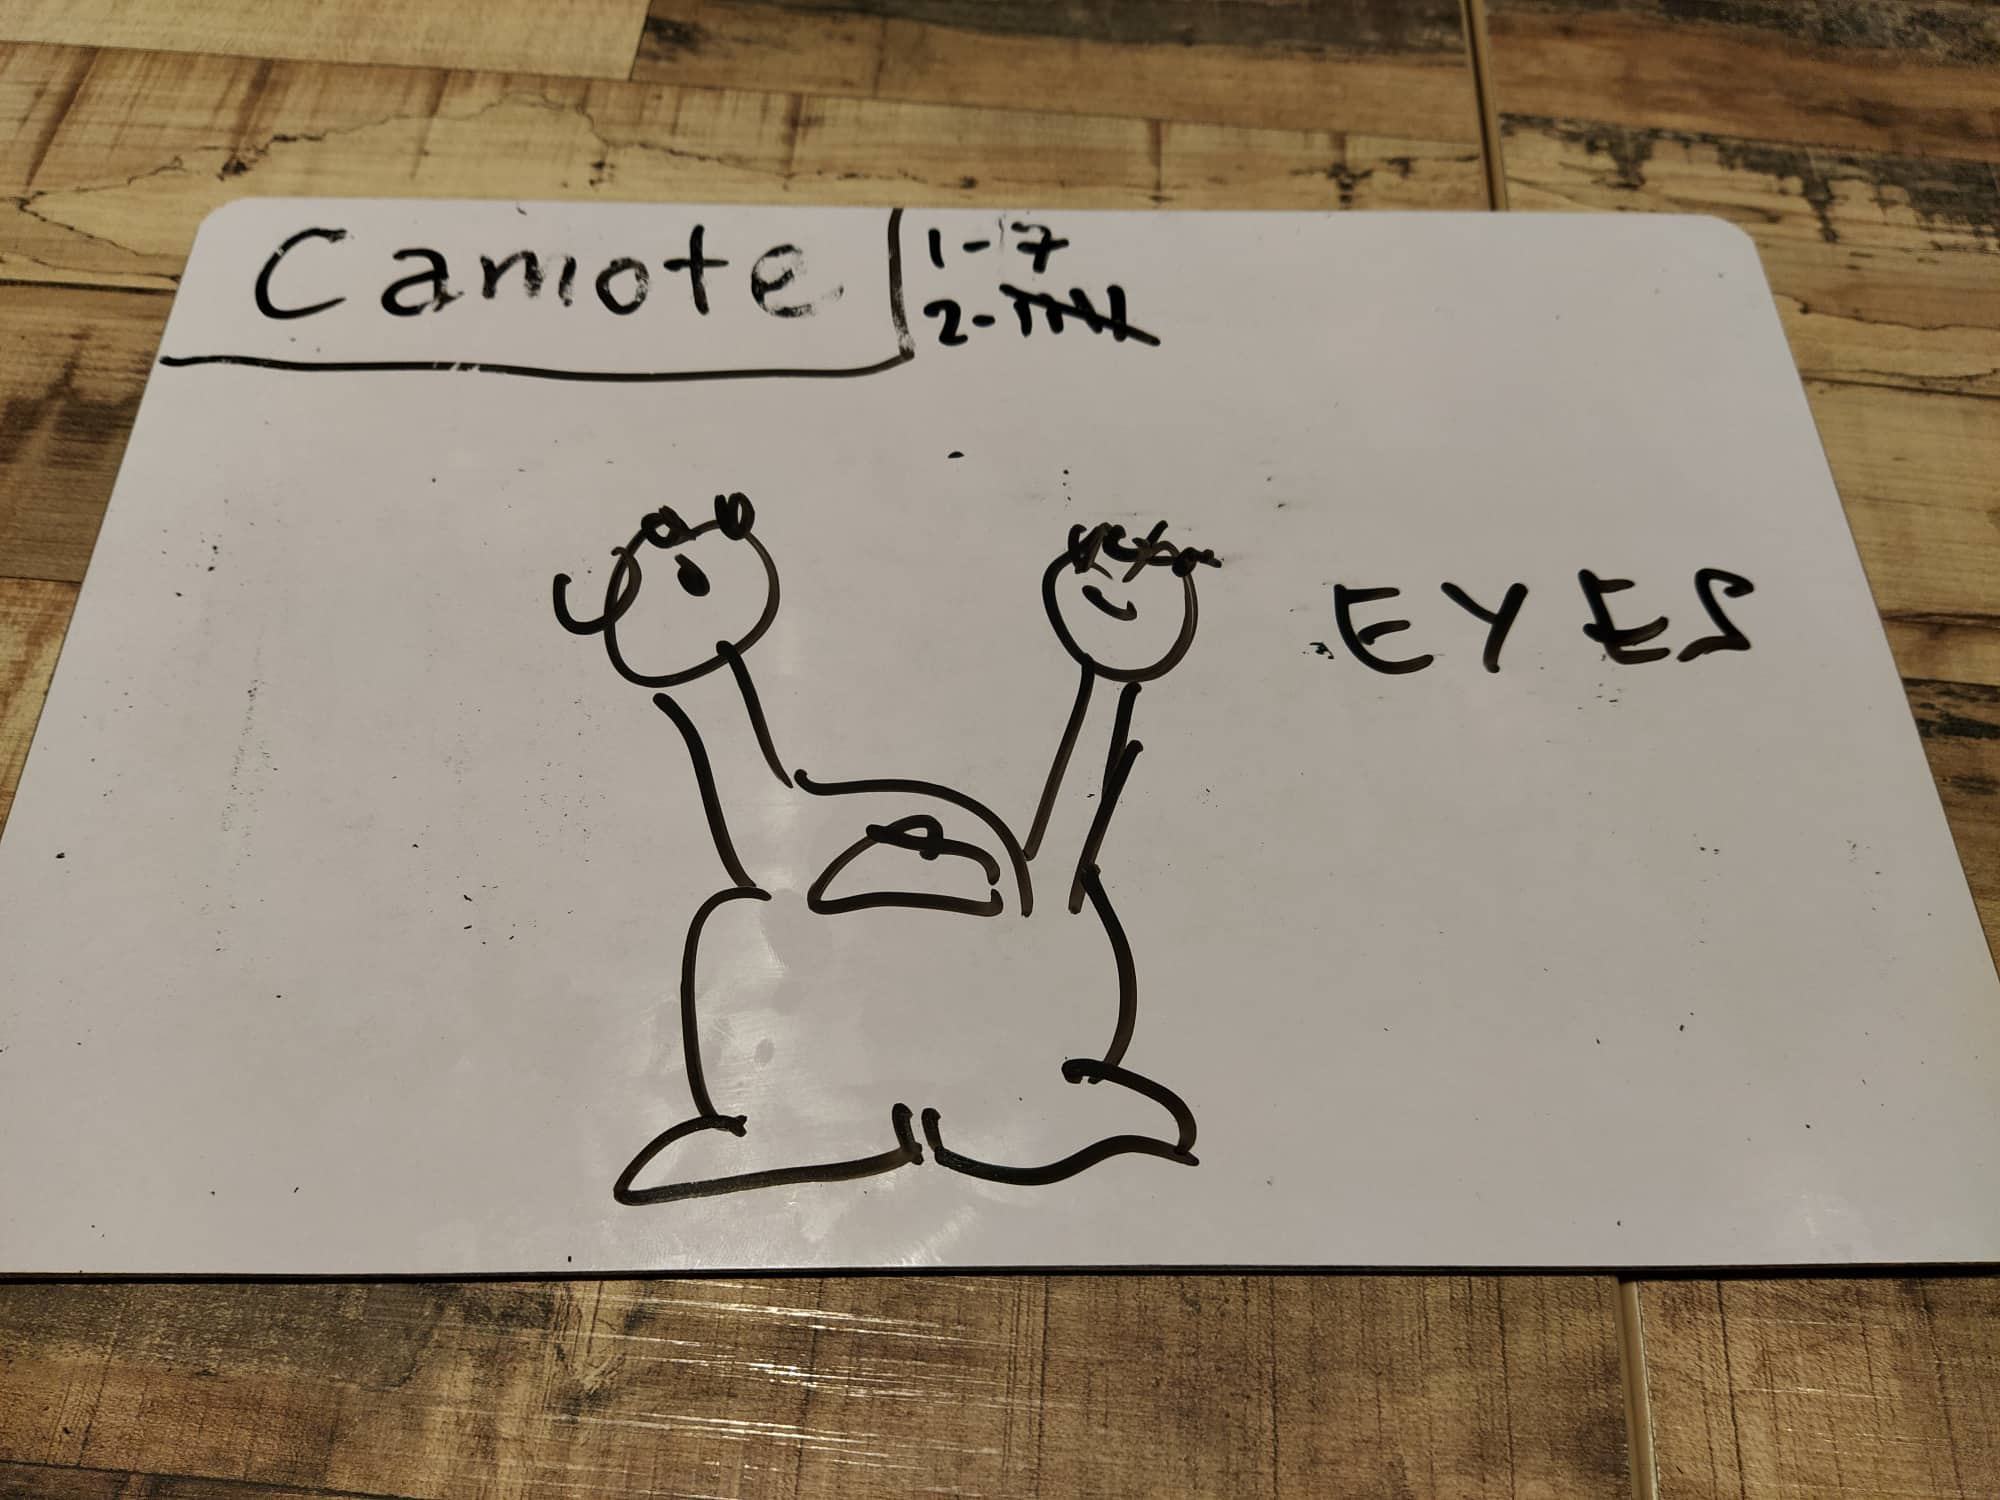 Camote
1-7
2-
EYES